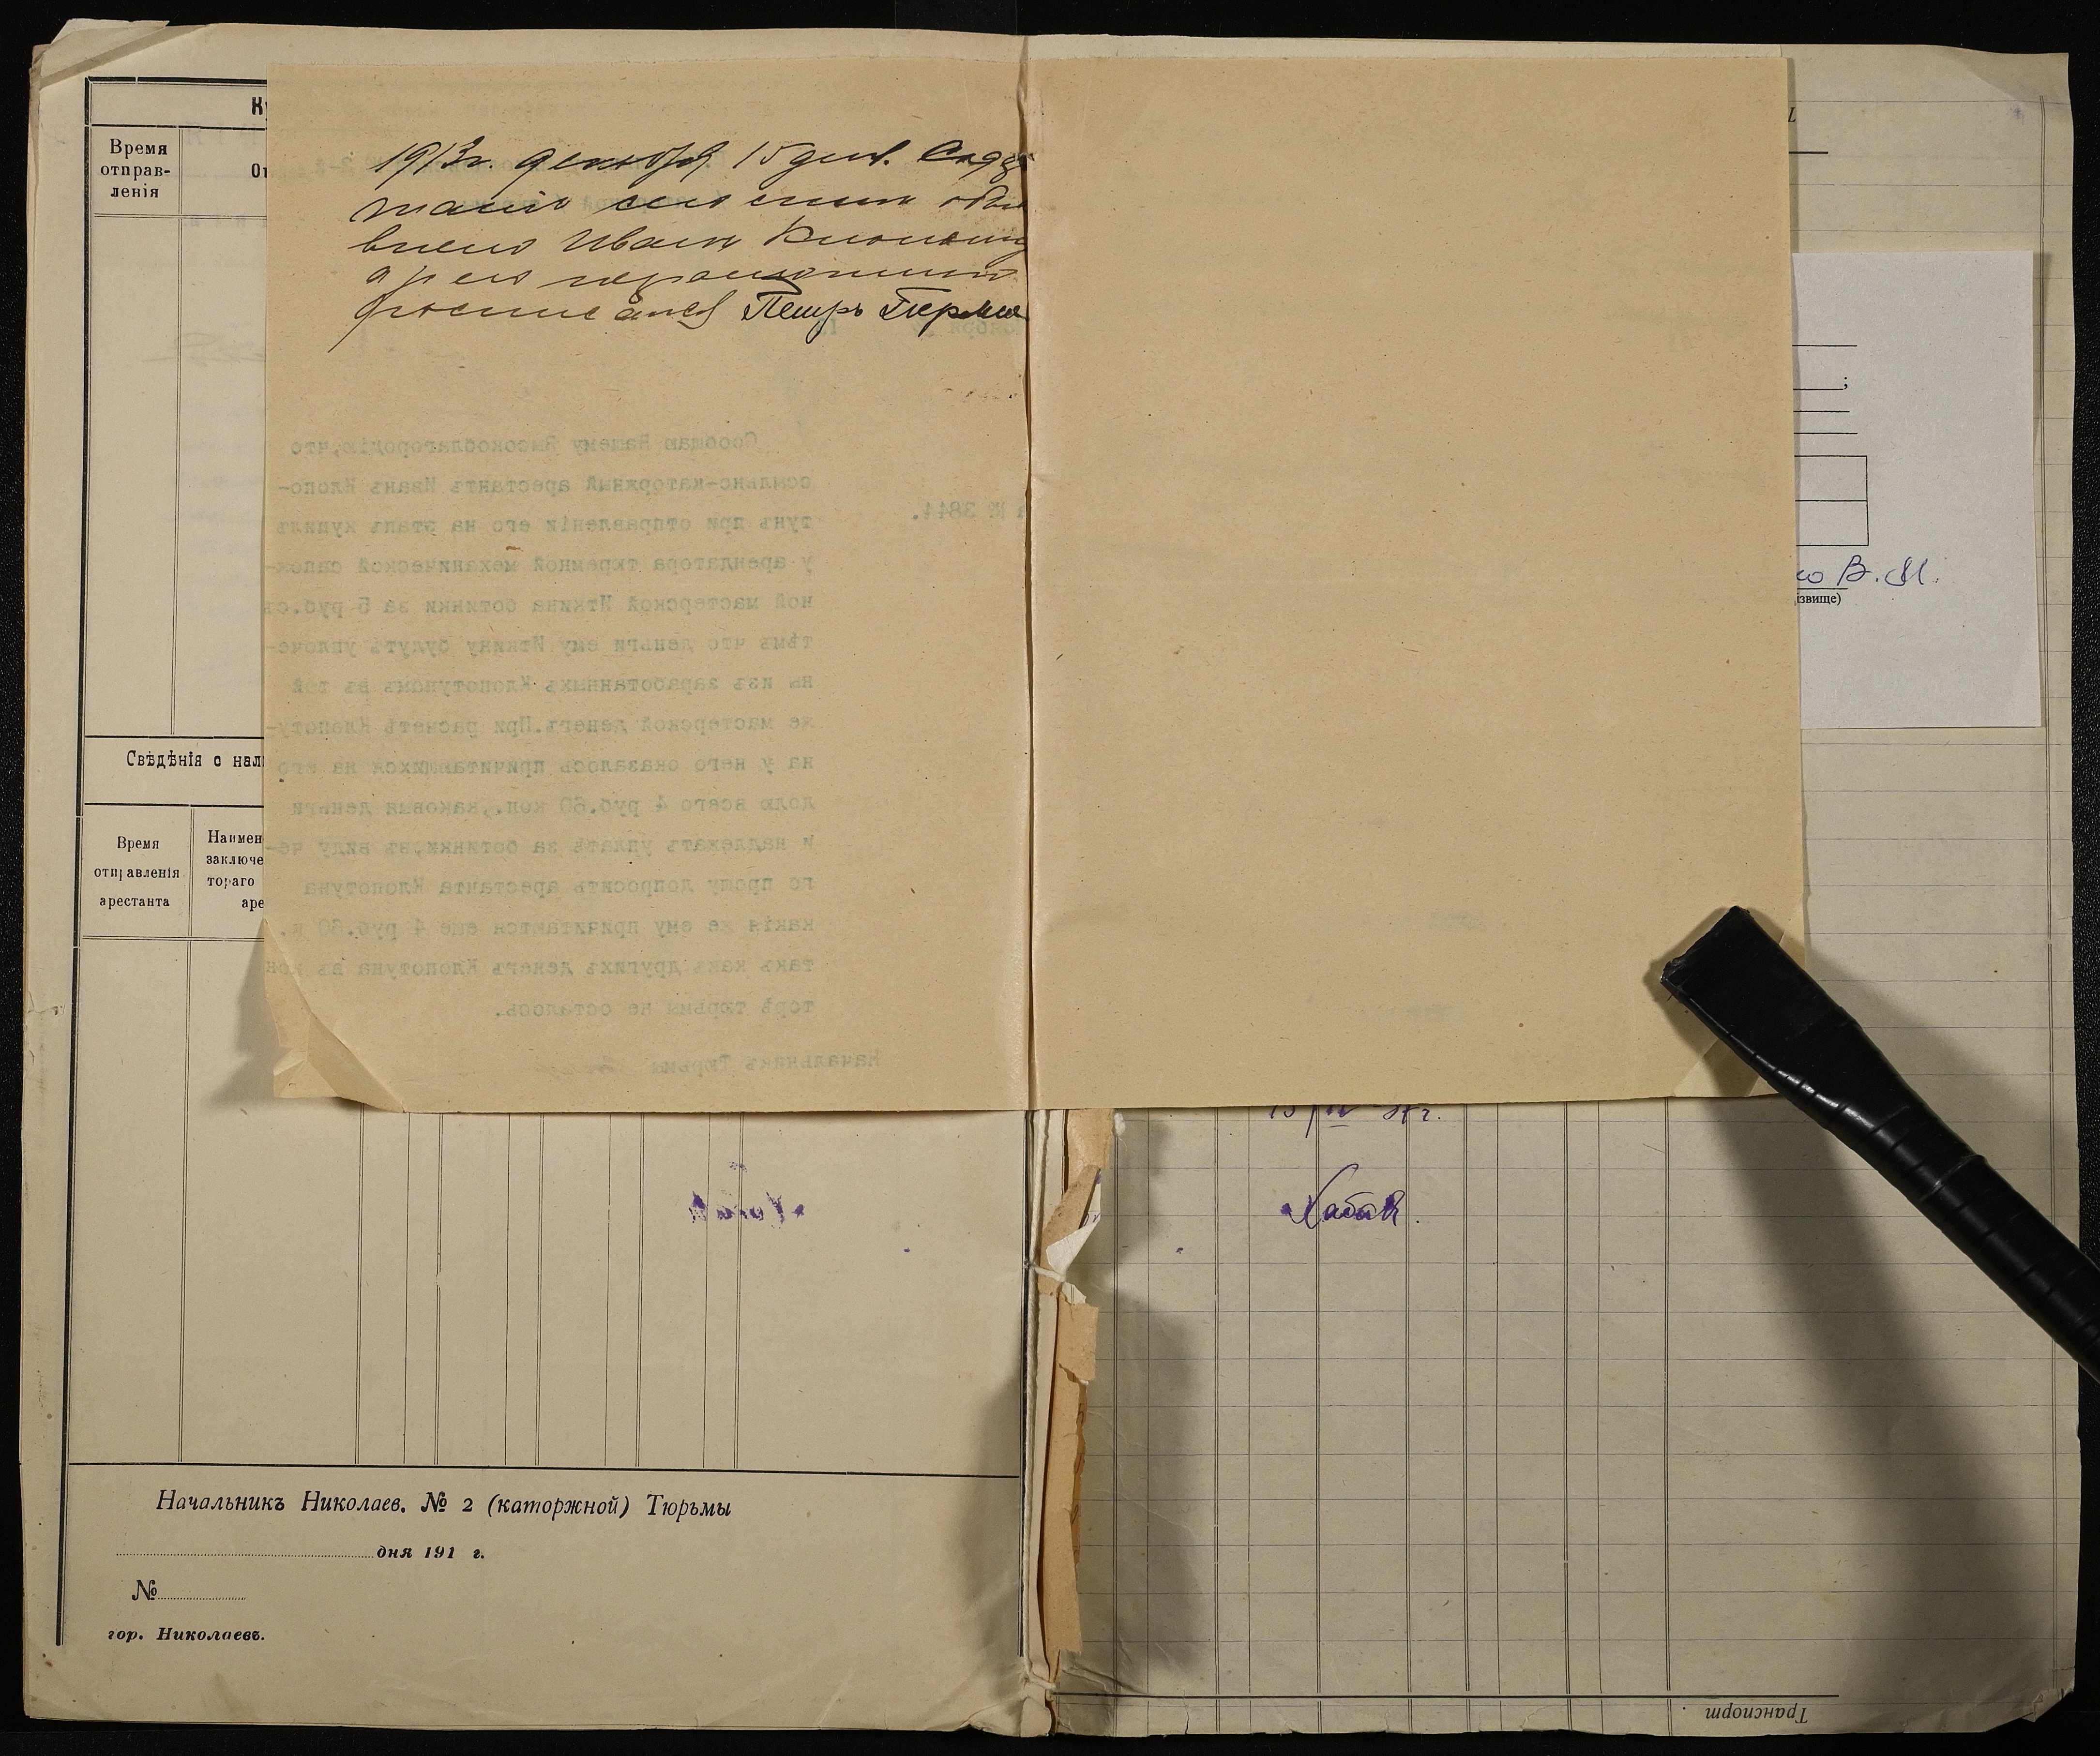 Время
отправ-
ленія
1913г. декабря 15 дня. Содер
жаніе сего мнѣ объя
влено Иванъ Клопотун
а за него неграмотнаго
росписался Петръ Герме
Сообщаю Вашему Высокоблагородію,что
ссыльно-каторжный арестантъ Иванъ Клопо-
тунъ при отправленіи его на этапъ купилъ
№ 3844.
у арендатора тюремной механической сапож-
ной мастерской Иткина ботинки за 5 руб.съ
тѣмъ что деньги ему Иткину будутъ уплоче-
ны изъ заработанныхъ Клопотуномъ въ той
же мастерской денегъ.При расчетѣ Клопоту-
на у него оказалось причитающихся на его
долю всего 4 руб.60 коп.,каковыя деньги
и надлежатъ уплатѣ за ботинки,въ виду че-
го прошу допросить арестанта Клопотуна
какія же ему причитаются еще 4 руб.60 к.
такъ какъ другихъ денегъ Клопотуна въ кон
торѣ тюрьмы не осталось.
Начальникъ Тюрьмы
Свѣдѣнія о нал
Время
отправленія
арестанта
Наимен
заключе
тораго
аре
Начальникъ Николаев. № 2 (каторжной) Тюрьмы
дня 191 г.
№
гор. Николаевъ.
;
ко В. М.
ізвище)
Транспорт